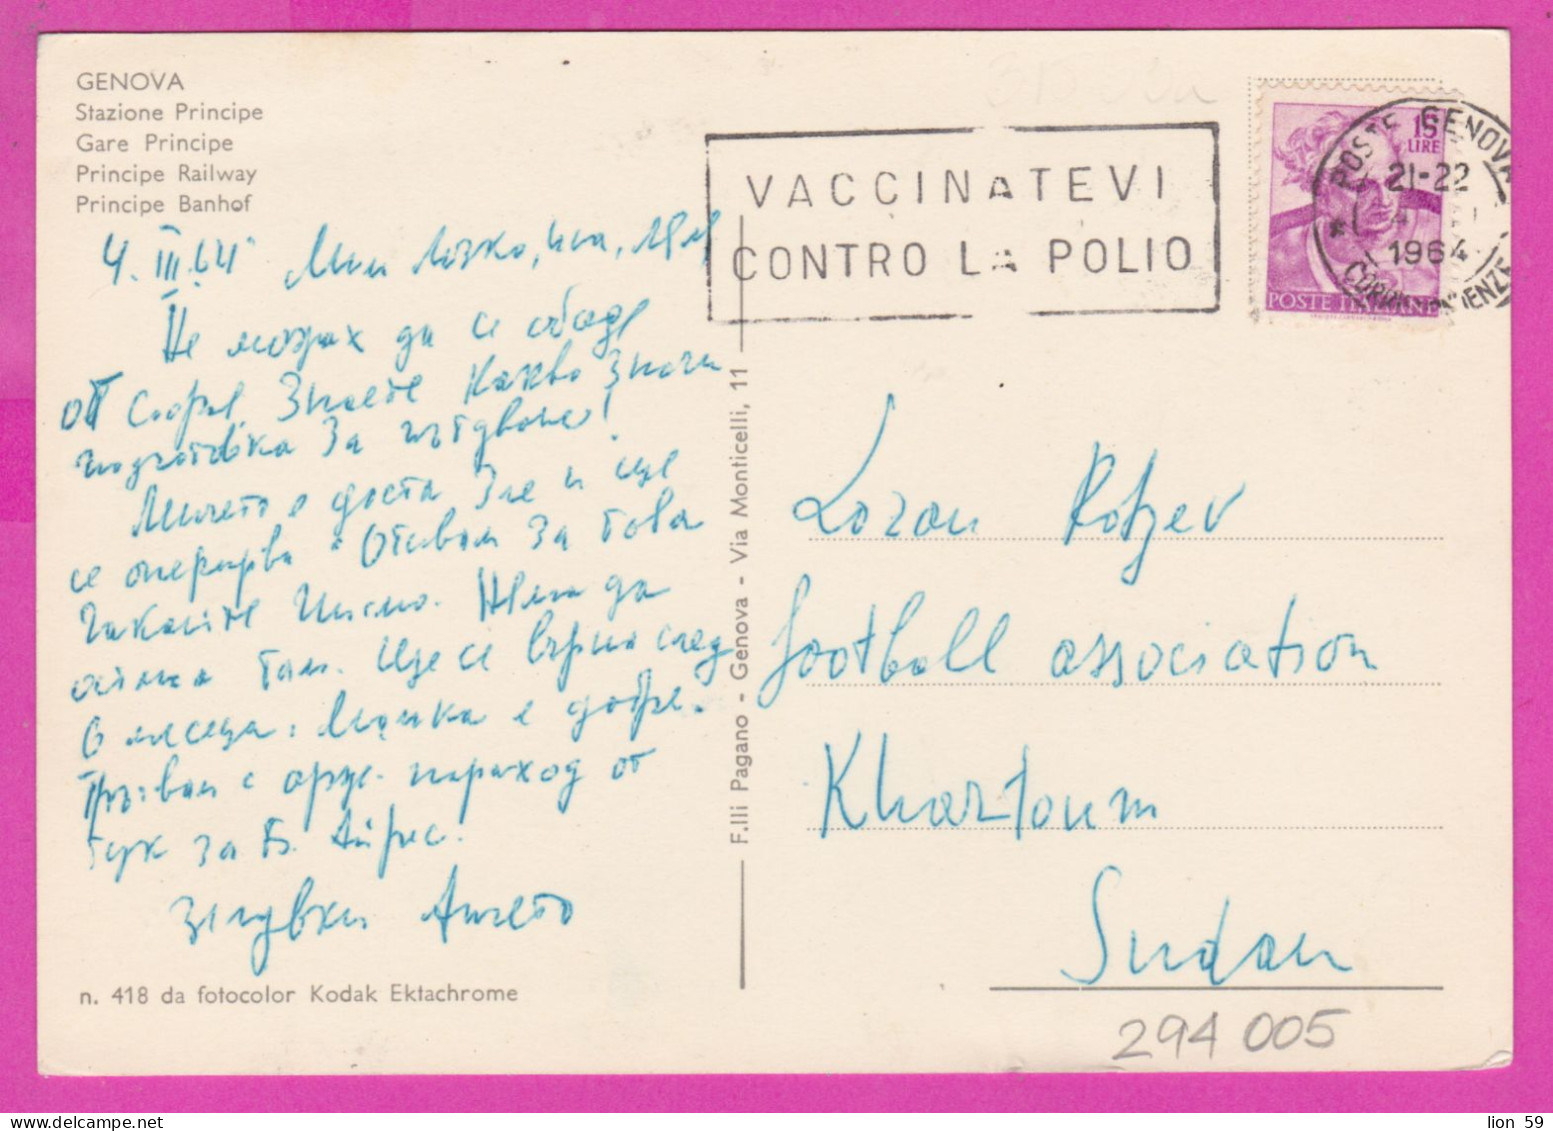 GENOVA
Stazione Principe
Gare Principe
Principe Railway
Principe Banhof
VACCINATEVI
CONTRO LA POLIO
15
LIRE
POSTE ITALIANE
POSTE GENOVA
21-22
1964
4. III. 64 Мили Лозко,
Не можах да се обадя
от София. Знаете какво значи
подготовка за пътуване!
е доста зле и ще
се оперира. Отивам за това
чакайте писмо. Няма да
остана там. Ще се върна след
6 месеца. е добре.
с параход от
тук за Б. Айрес.
Целувки
Lozan Kotzev
football association
Khartoum
Sudan
F.lli Pagano - Genova - Via Monticelli, 11
n. 418 da fotocolor Kodak Ektachrome
294 005
lion 59